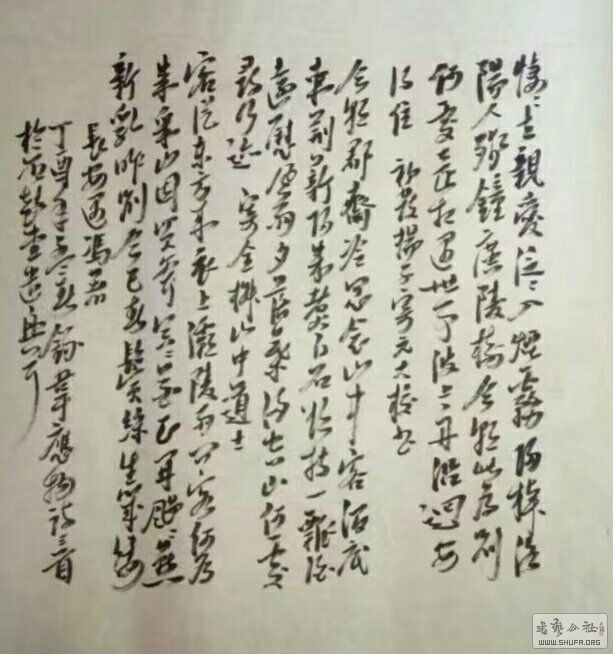 悽悽去親愛泛泛入煙霧歸棹洛
陽人殘鐘廣陵樹今朝此為別
何處還相遇世事波上舟沿洄安
得住 初發揚子寄元大校書
今朝郡齋冷忽念山中客澗底
束荊薪歸來煮白石欲持一瓢酒
遠慰風雨夕落葉滿空山何處
尋行跡 寄全椒山中道士
客從東方來衣上灞陵雨問客何為
來采山因買斧冥冥花正開颺颺燕
新乳昨別今已春鬢絲生幾縷
長安遇馮著
丁酉年春錄韋應物詩三首
於石
書藝公社
WWW.SHUFA.ORG